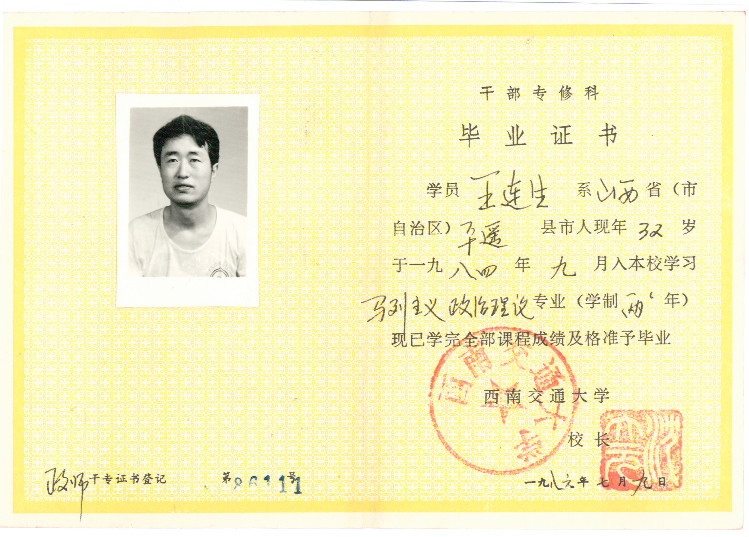 干部专修科
毕业证书
学员 王连生 系 山西 省（市
自治区）平遥 县市人现年 32 岁
于一九 八四 年 九 月入本校学习
马列主义政治理论 专业（学制 两 年）
现已学完全部课程成绩及格准予毕业
西南交通大学
西南交通大学
校长
政师干专证书登记 第86111号
一九八六年七月九日